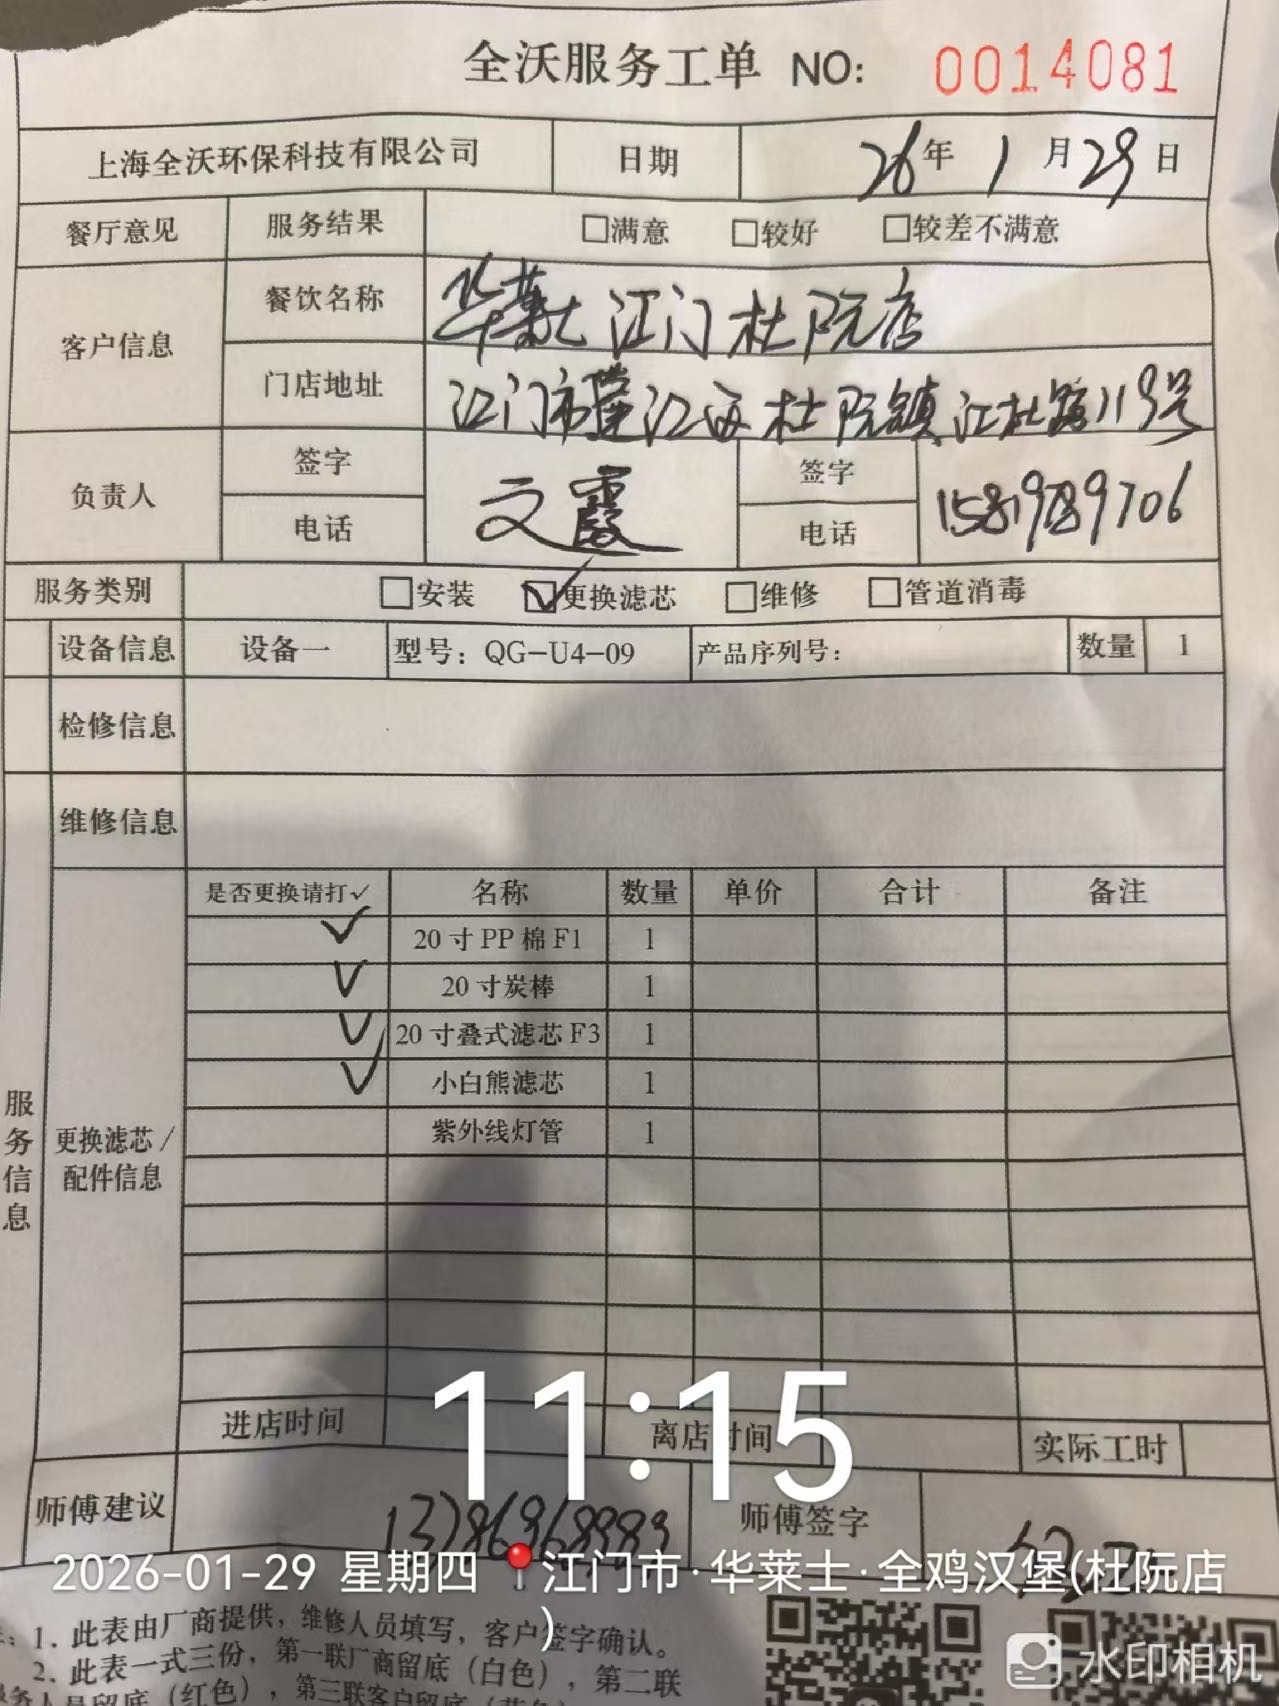 全沃服务工单 NO: 0014081
上海全沃环保科技有限公司 日期 26年1月29日
餐厅意见 服务结果 □满意 □较好 □较差不满意
客户信息
餐饮名称 华莱士江门杜阮店
门店地址 江门市蓬江区杜阮镇江杜路119号
负责人
签字 文霞 签字
电话 电话 15819789706
服务类别 □安装 ☑更换滤芯 □维修 □管道消毒
设备信息 设备一 型号：QG-U4-09 产品序列号： 数量 1
检修信息
维修信息
是否更换请打✓ 名称 数量 单价 合计 备注
✓ 20寸PP棉F1 1
✓ 20寸炭棒 1
✓ 20寸叠式滤芯F3 1
✓ 小白熊滤芯 1
紫外线灯管 1
服务信息
更换滤芯/
配件信息
进店时间 离店时间 实际工时
11:15
师傅建议 师傅签字
2026-01-29 星期四 江门市·华莱士·全鸡汉堡(杜阮店
)
1. 此表由厂商提供，维修人员填写，客户签字确认。
2. 此表一式三份，第一联厂商留底（白色），第二联
人员留底（红色），第三联客户留底
水印相机